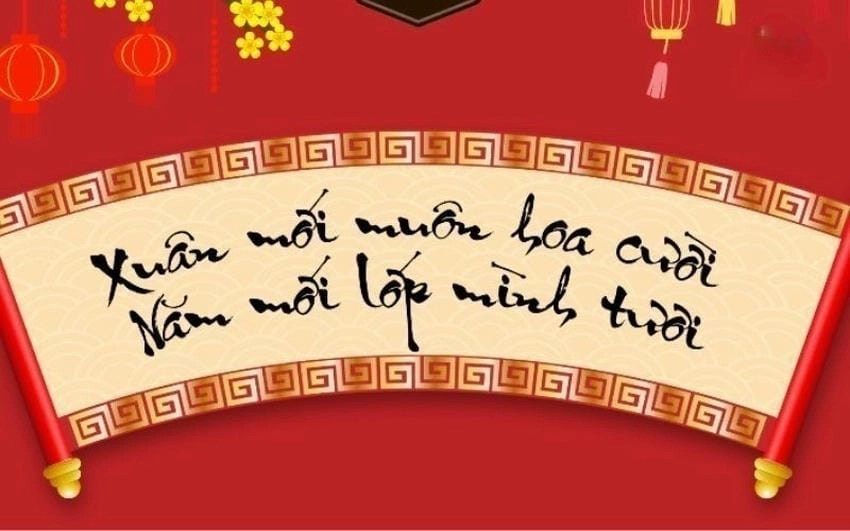 Xuân mới muôn hoa cười
Năm mới lớp mình tươi